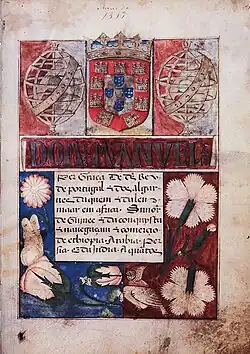 1517
DOM MANVEL
Per Graça de ds Rey
de portugal & dos algar
ues daquem & dalem
maar em africa. Sñnor
de Guinee & da comquysta
& naueguaçam & comercio
de ethiopia Arabia Per
sia & da India A quãtos